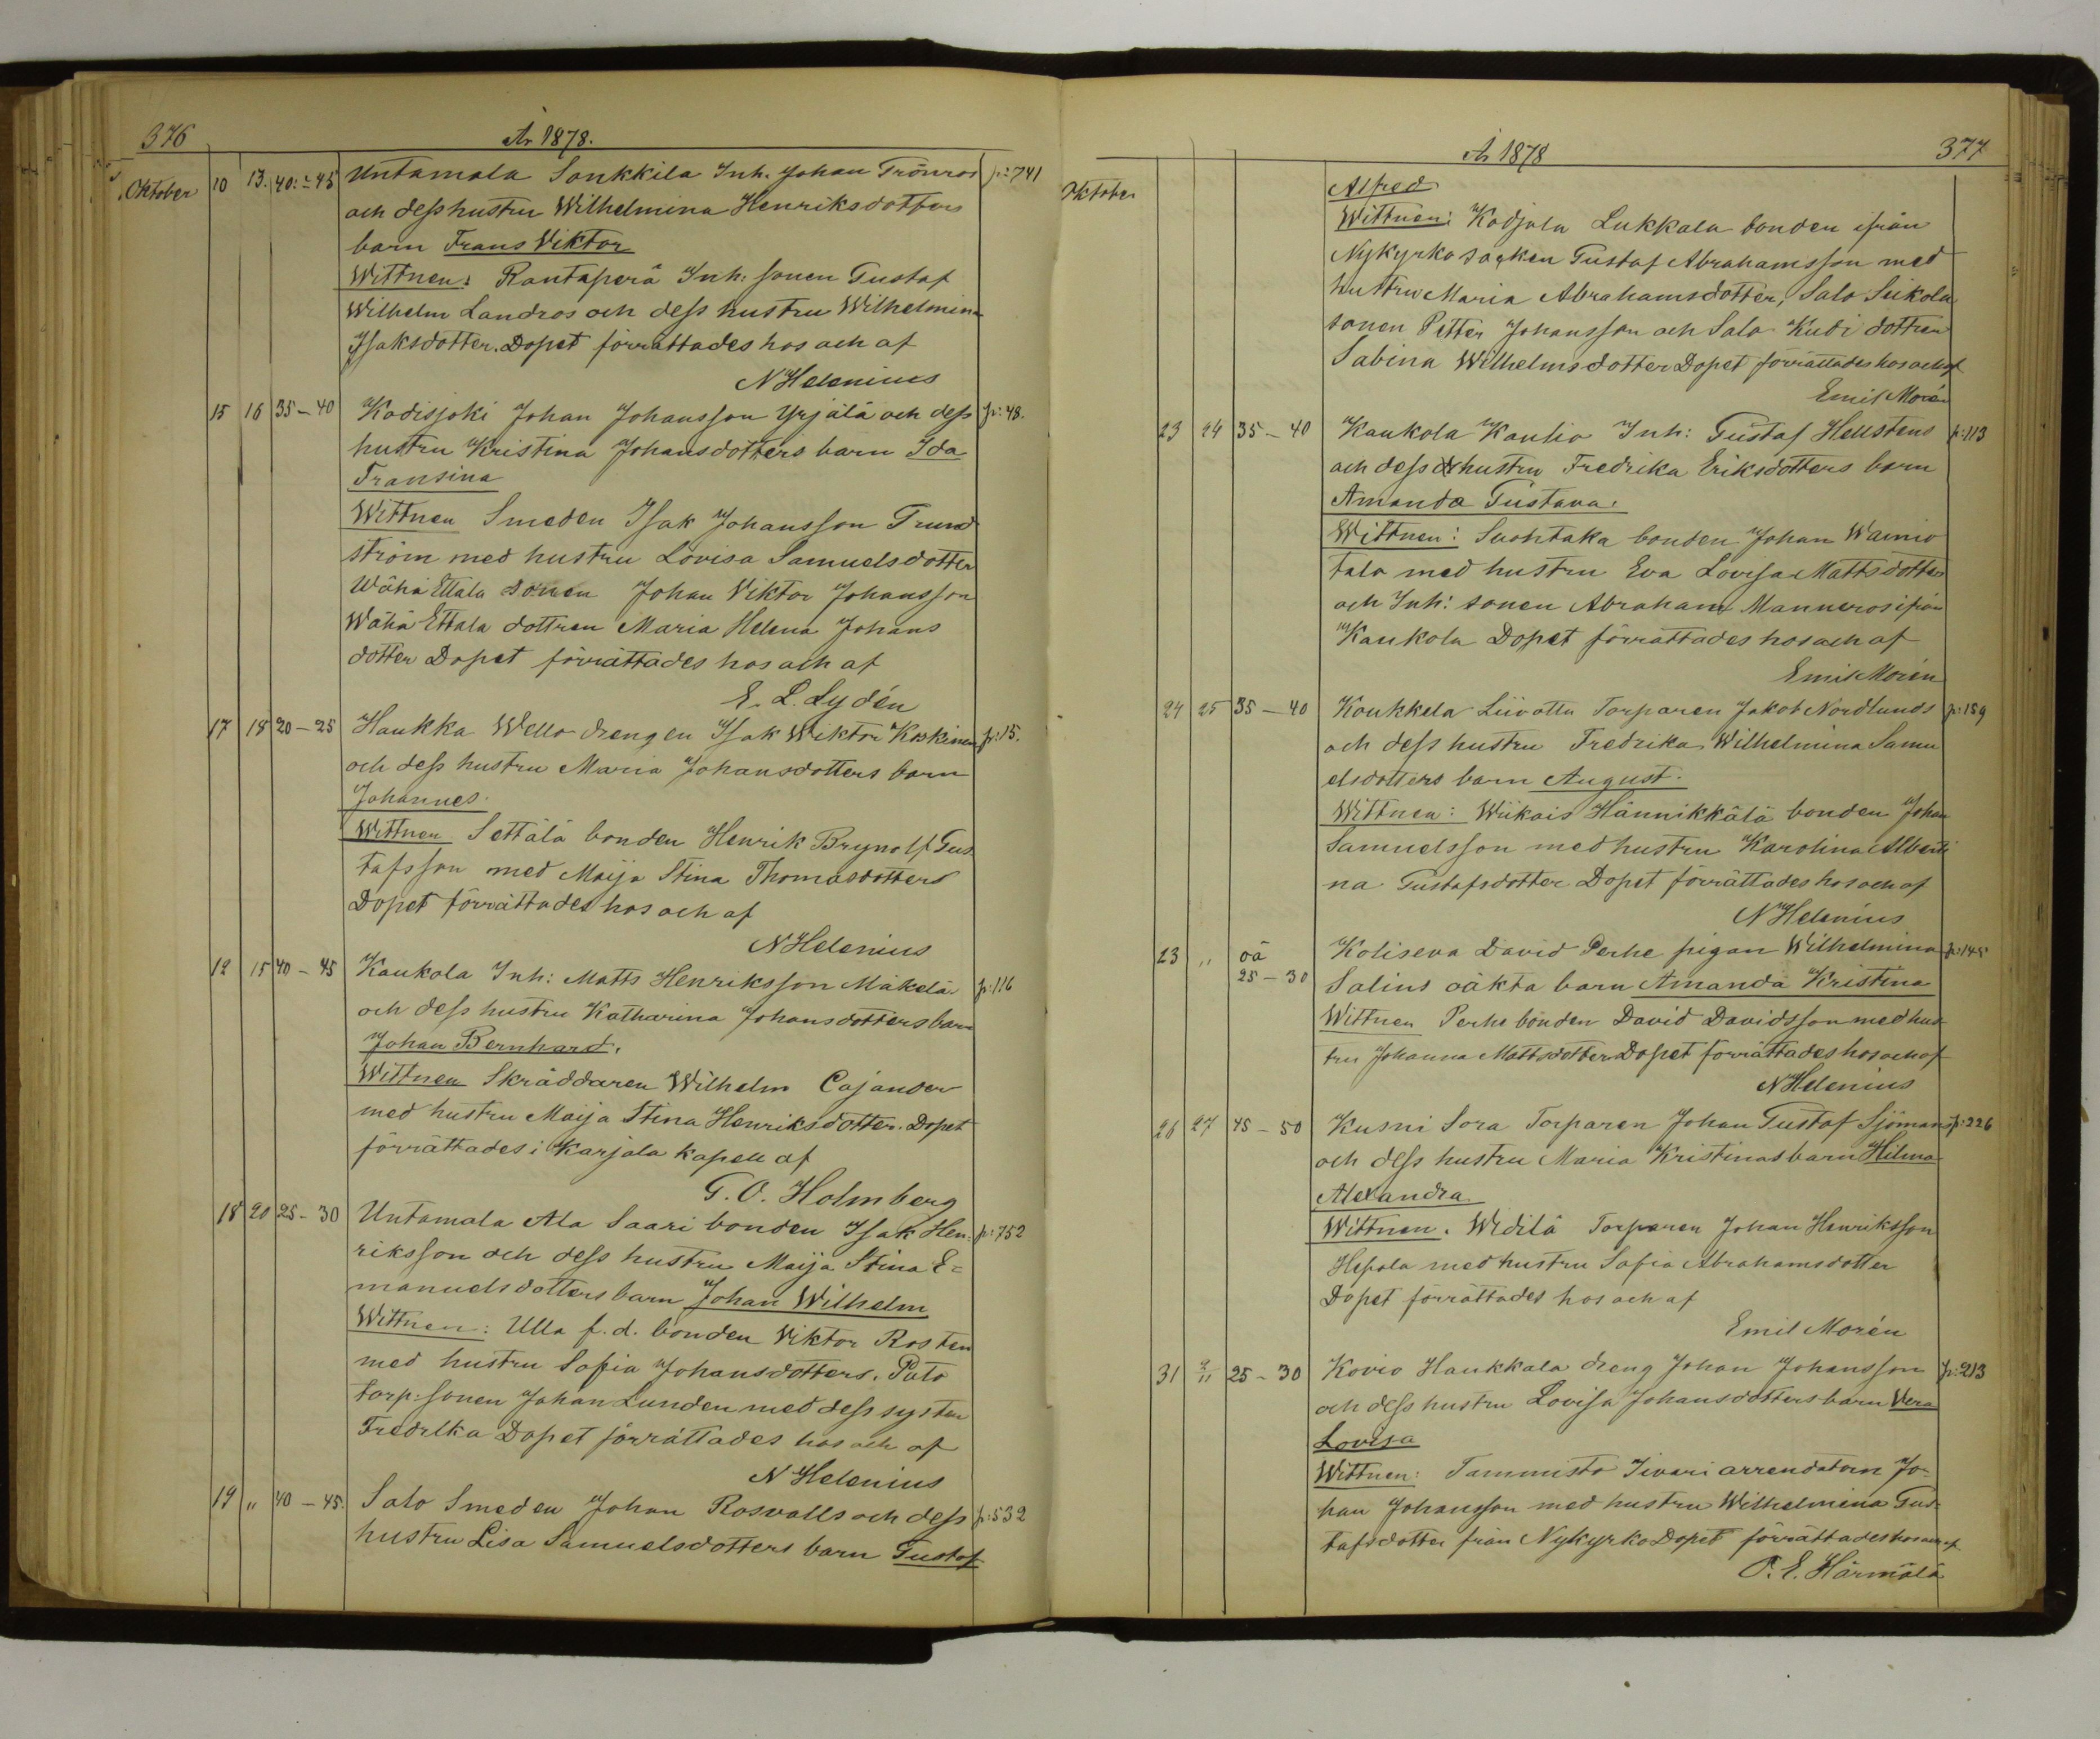 376
År 1878.
Oktober 10 13. 40:-45 Untamala Sonkkila Inh. Johan Grönros p: 741
och dess hustru Wilhelmina Henriksdotters
barn Frans Viktor
Wittnen: Rantaperä Inh: sonen Gustaf
Wilhelm Landros och dess hustru Wilhelmina
Isaksdotter. Dopet förrättades hos och af
N Helenius
15 16 35-40 Kodisjoki Johan Johansson Yrjälä och dess p: 48.
hustru Kristina Johansdotters barn Ida
Fransina
Wittnen Smeden Isak Johansson Grund
ström med hustru Lovisa Samuelsdotter
Wähä Ettala sonen Johan Viktor Johansson
Wähä Ettala dottren Maria Helena Johans
dotter Dopet förrättades hos och af
E. L. Lydén
17 18 20-25 Haukka Wello drengen Isak Wiktor Koskinen p: 15.
och dess hustru Maria Johansdotters barn
Johannes.
Wittnen Settälä bonden Henrik Brynolf Gus
tafsson med Maija Stina Thomasdotters
Dopet förrättades hos och af
N Helenius
12 15 40-45 Kaukola Inh: Matts Henriksson Mäkelä p: 116
och dess hustru Katharina Johansdotters barn
Johan Bernhard.
Wittnen Skräddaren Wilhelm Cajander
med hustru Maija Stina Henriksdotter. Dopet
förrättades i Karjala kapell af
G. O. Holmberg
18 20 25-30 Untamala Ala Saari bonden Isak Hen- p: 752
riksson och dess hustru Maija Stina E=
manuelsdotters barn Johan Wilhelm
Wittnen: Ulla f. d. bonden Viktor Rosten
med hustru Sofia Johansdotters. Palo
torp: sonen Johan Lunden med dess syster
Fredrika Dopet förrättades hos och af
N Helenius
19 " 40-45. Salo Smeden Johan Rosvalls och dess p: 532
hustru Lisa Samuelsdotters barn Gustaf
År 1878
377
Oktober Alfred
Wittnen: Kodjala Lukkala bonden ifrån
Nykyrko socken Gustaf Abrahamsson med
hustru Maria Abrahamsdotter, Salo Seikola
sonen Petter Johansson och Salo Kudi dottren
Sabina Wilhelmsdotter Dopet förrättades hos och af
Emil Morén
23 24 35-40 Kaukola Kaulio Inh: Gustaf Hellstens p: 113
och dess hustru Fredrika Eriksdotters barn
Amanda Gustava.
Wittnen: Suontaka bonden Johan Wainio
talo med hustru Eva Lovisa Mattsdotters
och Inh: sonen Abraham Manneros ifrån
Kaukola Dopet förrättades hos och af
Emil Morén
24 25 35-40 Koukkela Liivattu Torparen Jakob Nordlunds p: 159
och dess hustru Fredrika Wilhelmina Samu
elsdotters barn August.
Wittnen: Wiikais Hännikkälä bonden Johan
Samuelsson med hustru Karolina Alberti
na Gustafsdotter Dopet förrättades hos och af
N Helenius
23 " oä 25-30 Koliseva David Perhe pigan Wilhelmina p: 145
Salins oäkta barn Amanda Kristina
Wittnen Perhe bonden David Davidsson med hus
tru Johanna Mattsdotter Dopet förrättades hos och af
N Helenius
26 27 45-50 Kusni Sora Torparen Johan Gustaf Sjömans p: 226
och dess hustru Maria Kristinas barn Hilma
Alexandra.
Wittnen. Widilä Torparen Johan Henriksson
Hepola med hustru Sofia Abrahamsdotter
Dopet förrättades hos och af
Emil Morén
31 2/11 25-30 Kovio Haukkala dreng Johan Johansson p: 213
och dess hustru Lovisa Johansdotters barn Vera
Lovisa
Wittnen: Tammisto Iivari arrendatorn Jo-
han Johansson med hustru Wilhelmina Gus-
tafsdotter från Nykyrko Dopet förrättades hos och af
P. E. Härmälä